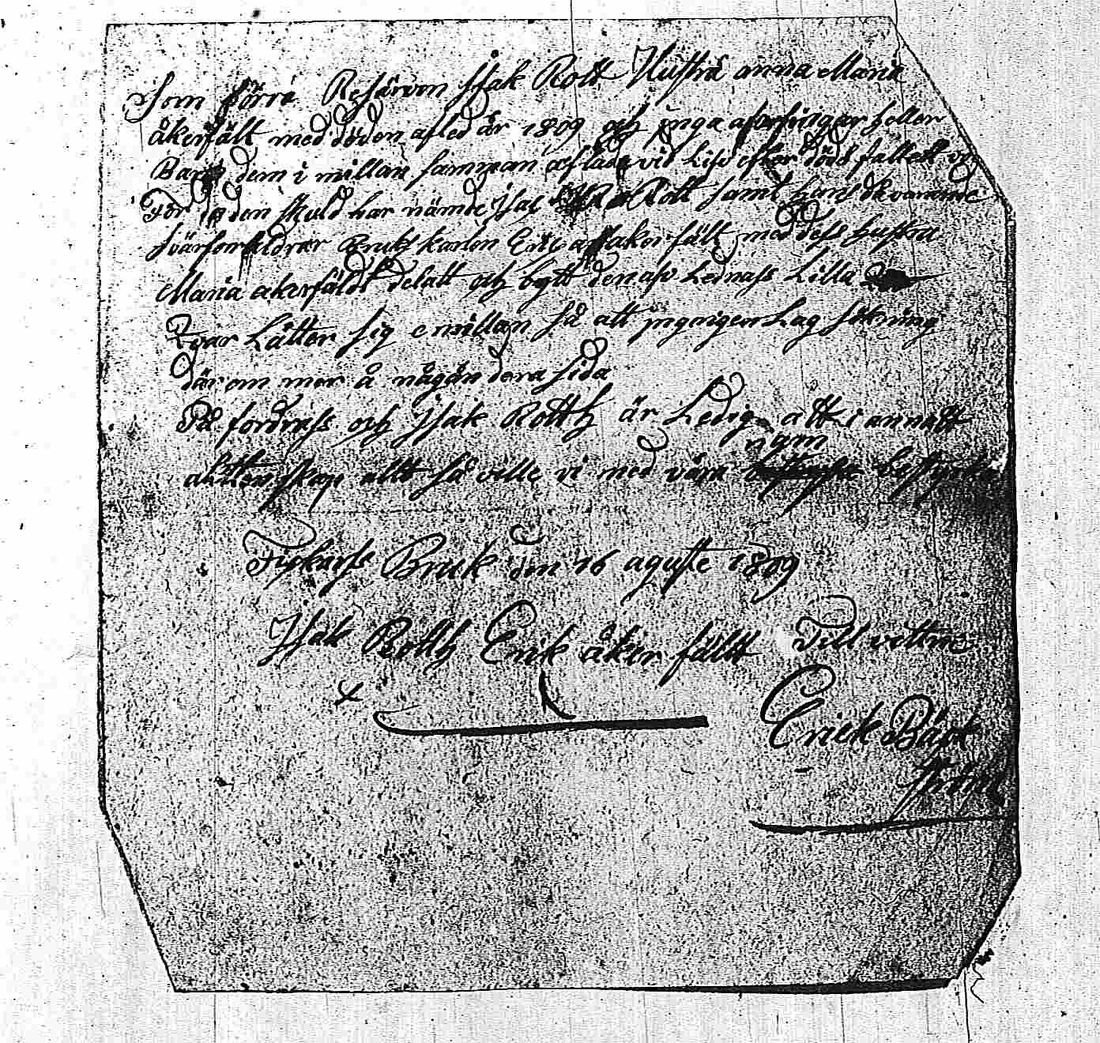 Som förra Resärven Isak Rott Hustru anna Maria
åkerfält med döden afled år 1809 och inga arfvingar heller
Barn dem i millan samman aflade vid Lif efter döds fallett
För den skuld har nämde Isac Rott samt
svärföräldrar Bruks karlen Eric åkerfält med dess hustru
Maria åkerfäldt delatt och bytt den af Lednas Lilla
qvar Låtten sig emillan så att ingen Lag sökning
där om mer å någån dera sida
På fordras och Isak Rotth är Ledig att i annatt
skrige allt så ville vi med våra namn
Fiskars Bruk den 16 aguste 1809
Isak Rotth Erik åker fällt Till vittne
Erick Bäck